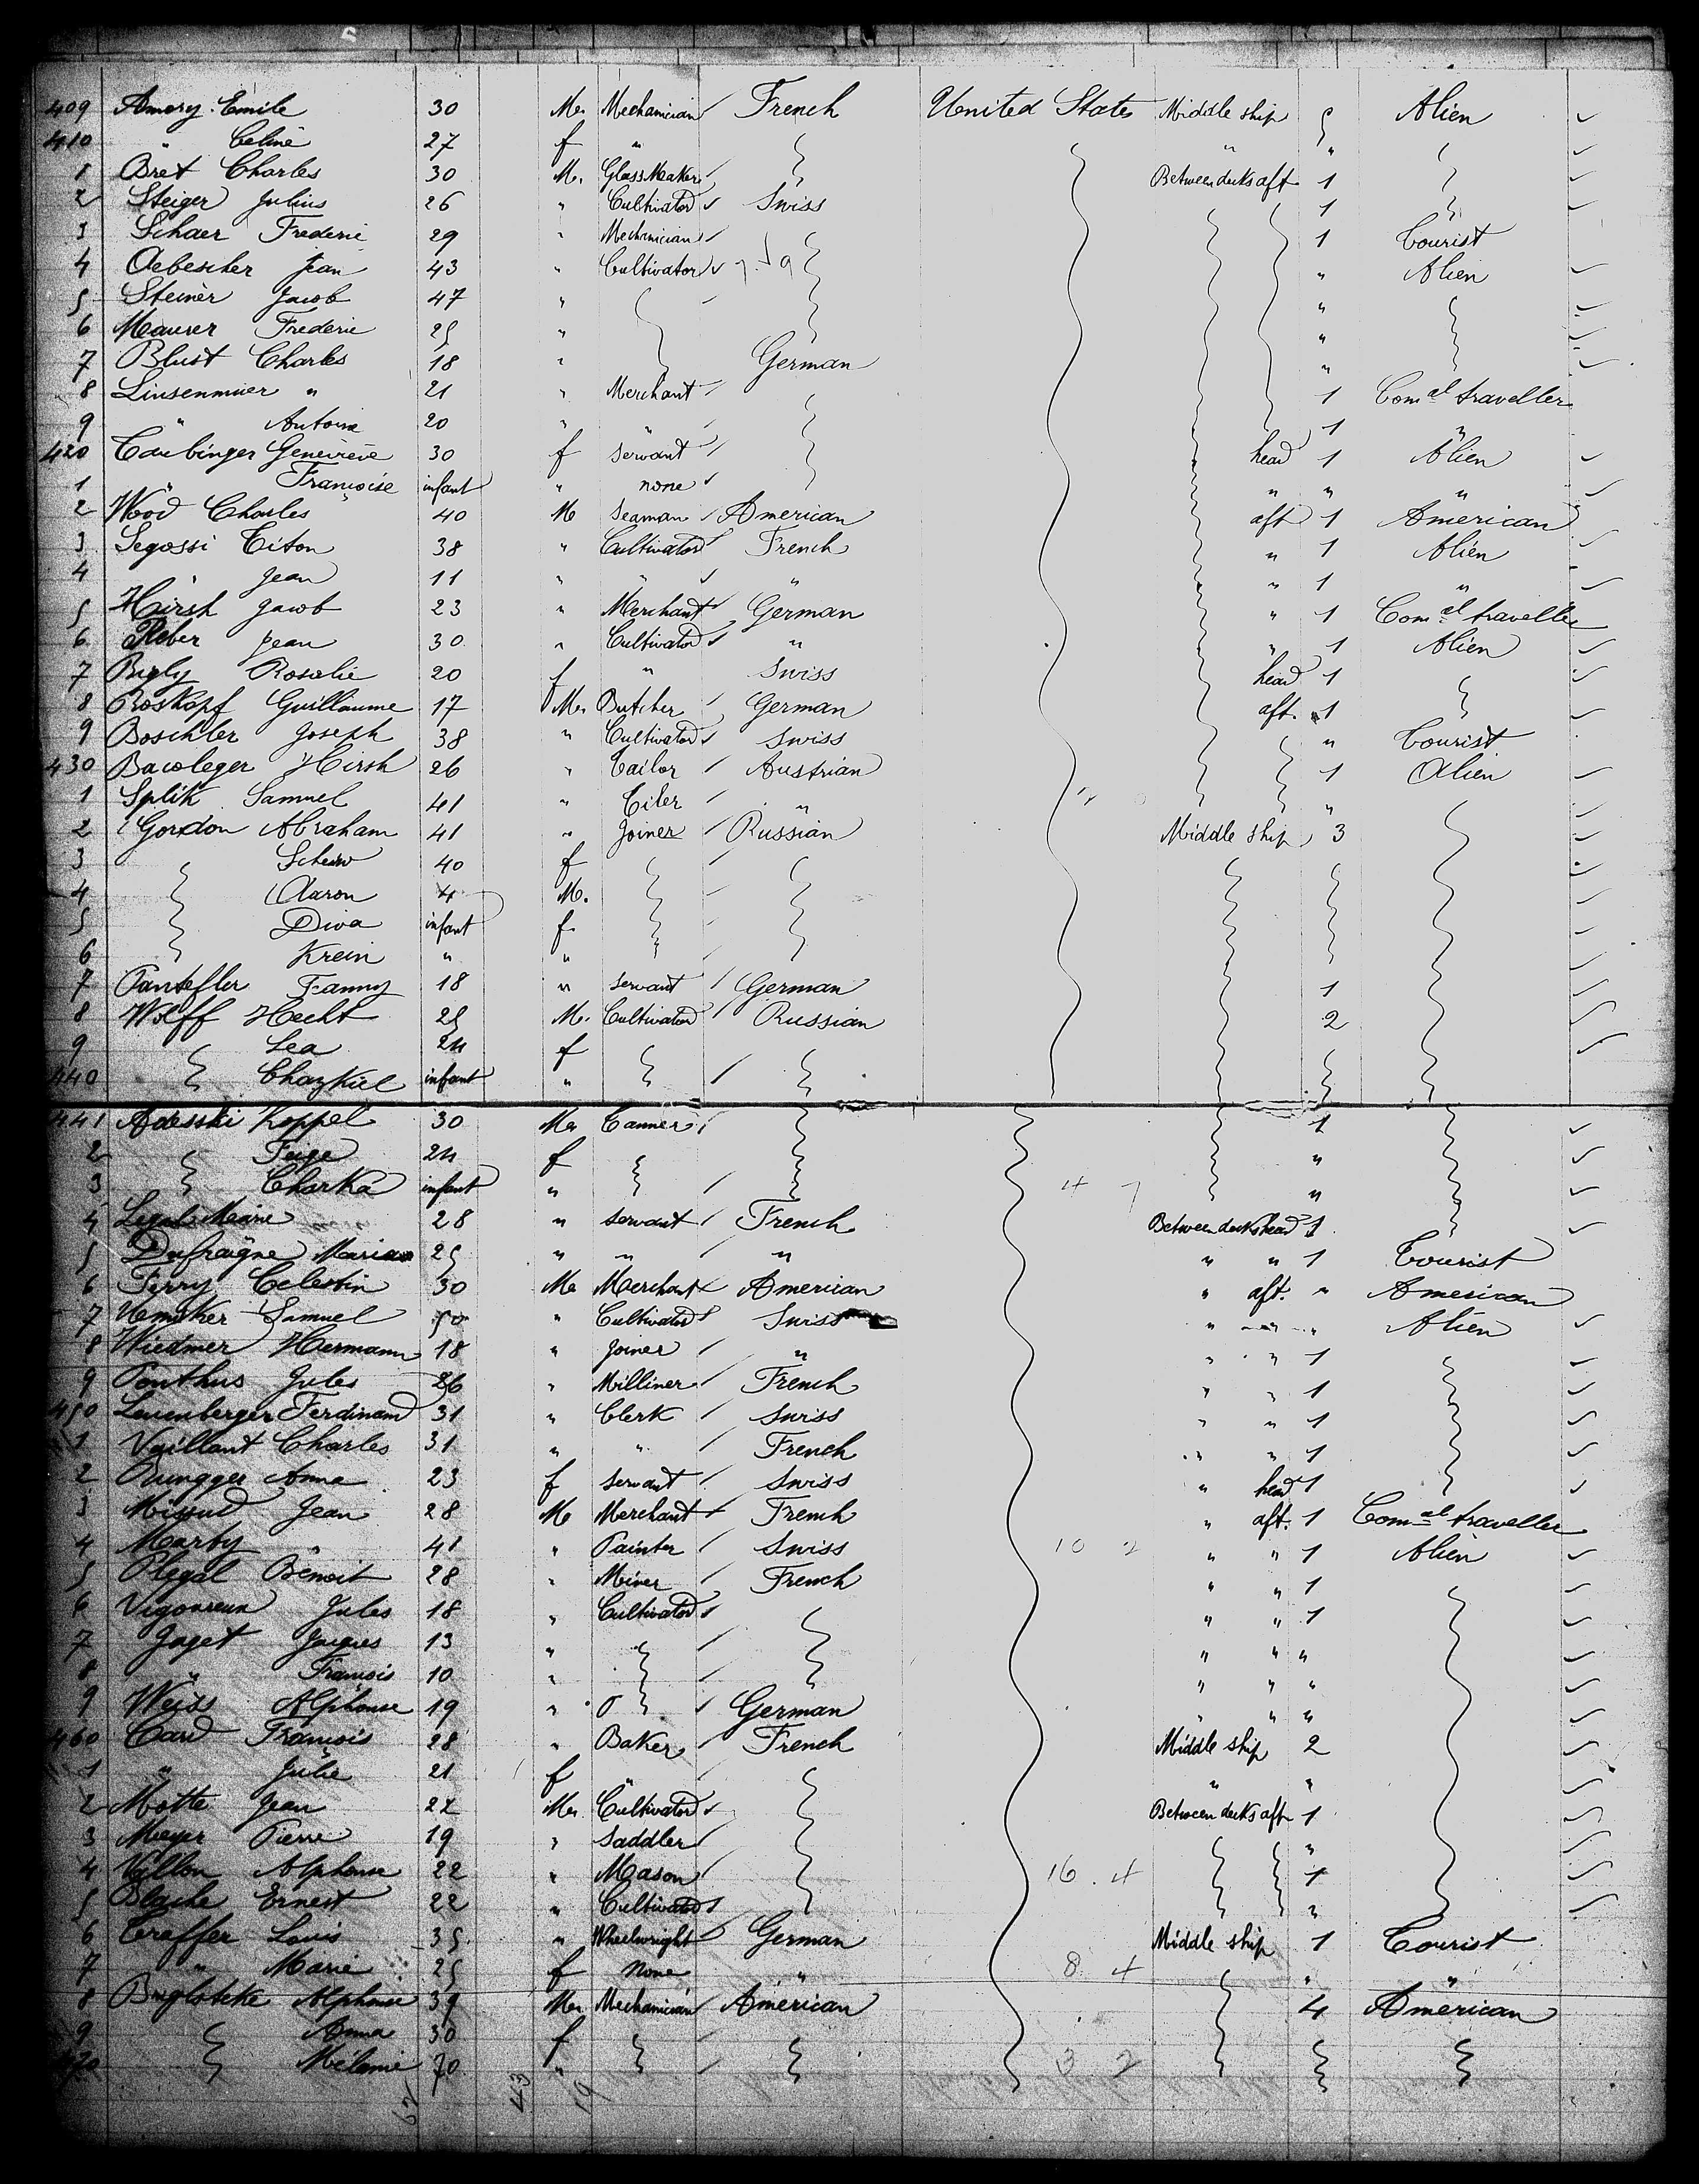 409 Amory Emile 30 M. Mechanician French United States Middle ship 5 Alien
410 " Celine 27 f " " "
1 Bret Charles 30 M. Glass Maker Between decks aft 1
2 Steiger Julius 26 " Cultivator Swiss 1
3 Schaer Frederic 29 " Mechanician 1 Tourist
4 Aebescher Jean 43 " Cultivator " Alien
5 Steiner Jacob 47 " "
6 Maurer Frederic 25 " "
7 Blust Charles 18 " German "
8 Linsenmeier " 21 " Merchant 1 Com.al traveller
9 " Antoine 20 " " 1 "
420 Taubinger Geneviève 30 f servant head 1 Alien
1 " Françoise infant " none " " "
2 Wood Charles 40 M seaman American aft 1 American
3 Segossi Titon 38 " Cultivator French " 1 Alien
4 " Jean 11 " " " " 1 "
5 Hirsh Jacob 23 " Merchant German " 1 Com.al traveller
6 Reber Jean 30 " Cultivator " " 1 Alien
7 Bigly Rosalie 20 f " Swiss head 1
8 Roskopf Guillaume 17 M. Butcher German aft. 1
9 Boschler Joseph 38 " Cultivator Swiss " Tourist
430 Bacoleger Hirsh 26 " Tailor Austrian 1 Alien
1 Splik Samuel 41 " Tiler " "
2 Gordon Abraham 41 " Joiner Russian Middle ship 3
3 40 f
4 Aaron 4 M.
5 Diva infant f.
6 Krein " "
7 Pantefler Fanny 18 " servant German 1
8 Wolff Hecht 25 M. Cultivator Russian 2
9 Lea 24 f
440 Chazkiel infant "
441 Adesski Koppel 30 M. Tanner 1
2 Feige 24 f "
3 Charka infant " "
4 Legal Marie 28 " servant French Between decks head 1
5 Dufraigne Maria 25 " " " " " 1 Tourist
6 Ferry Celestin 30 M. Merchant American " aft. " American
7 Samuel 50 " Cultivator Swiss " " " Alien
8 Wiedmer Hermann 18 " Joiner " " " 1
9 Ponthus Jules 26 " Milliner French " " 1
450 Leuenberger Ferdinand 31 " Clerk Swiss " " 1
1 Vaillant Charles 31 " " French " " 1
2 Rungger Anna 23 f servant Swiss " head 1
3 Missud Jean 28 M Merchant French " aft. 1 Com.al traveller
4 Marby " 41 " Painter Swiss " " 1 Alien
5 Plegal Benoit 28 " Miner French " " 1
6 Vigoureux Jules 18 " Cultivator " " 1
7 Jaget Jacques 13 " " " "
8 " François 10 " " " "
9 Weiss Alphonse 19 " German " " "
460 Card François 28 " Baker French Middle ship 2
1 " Julie 21 f " " "
2 Motte Jean 22 M. Cultivator Between decks aft 1
3 Meyer Pierre 19 " Saddler "
4 Vallon Alphonse 22 " Mason 1
5 Blache Ernest 22 " Cultivator "
6 Traffer Louis 35 " Wheelwright German Middle ship 1 Tourist
7 " Marie 25 f none " " "
8 Alphonse 39 M. Mechanician American 4 American
9 Anna 30 f
470 Mélanie 70 "